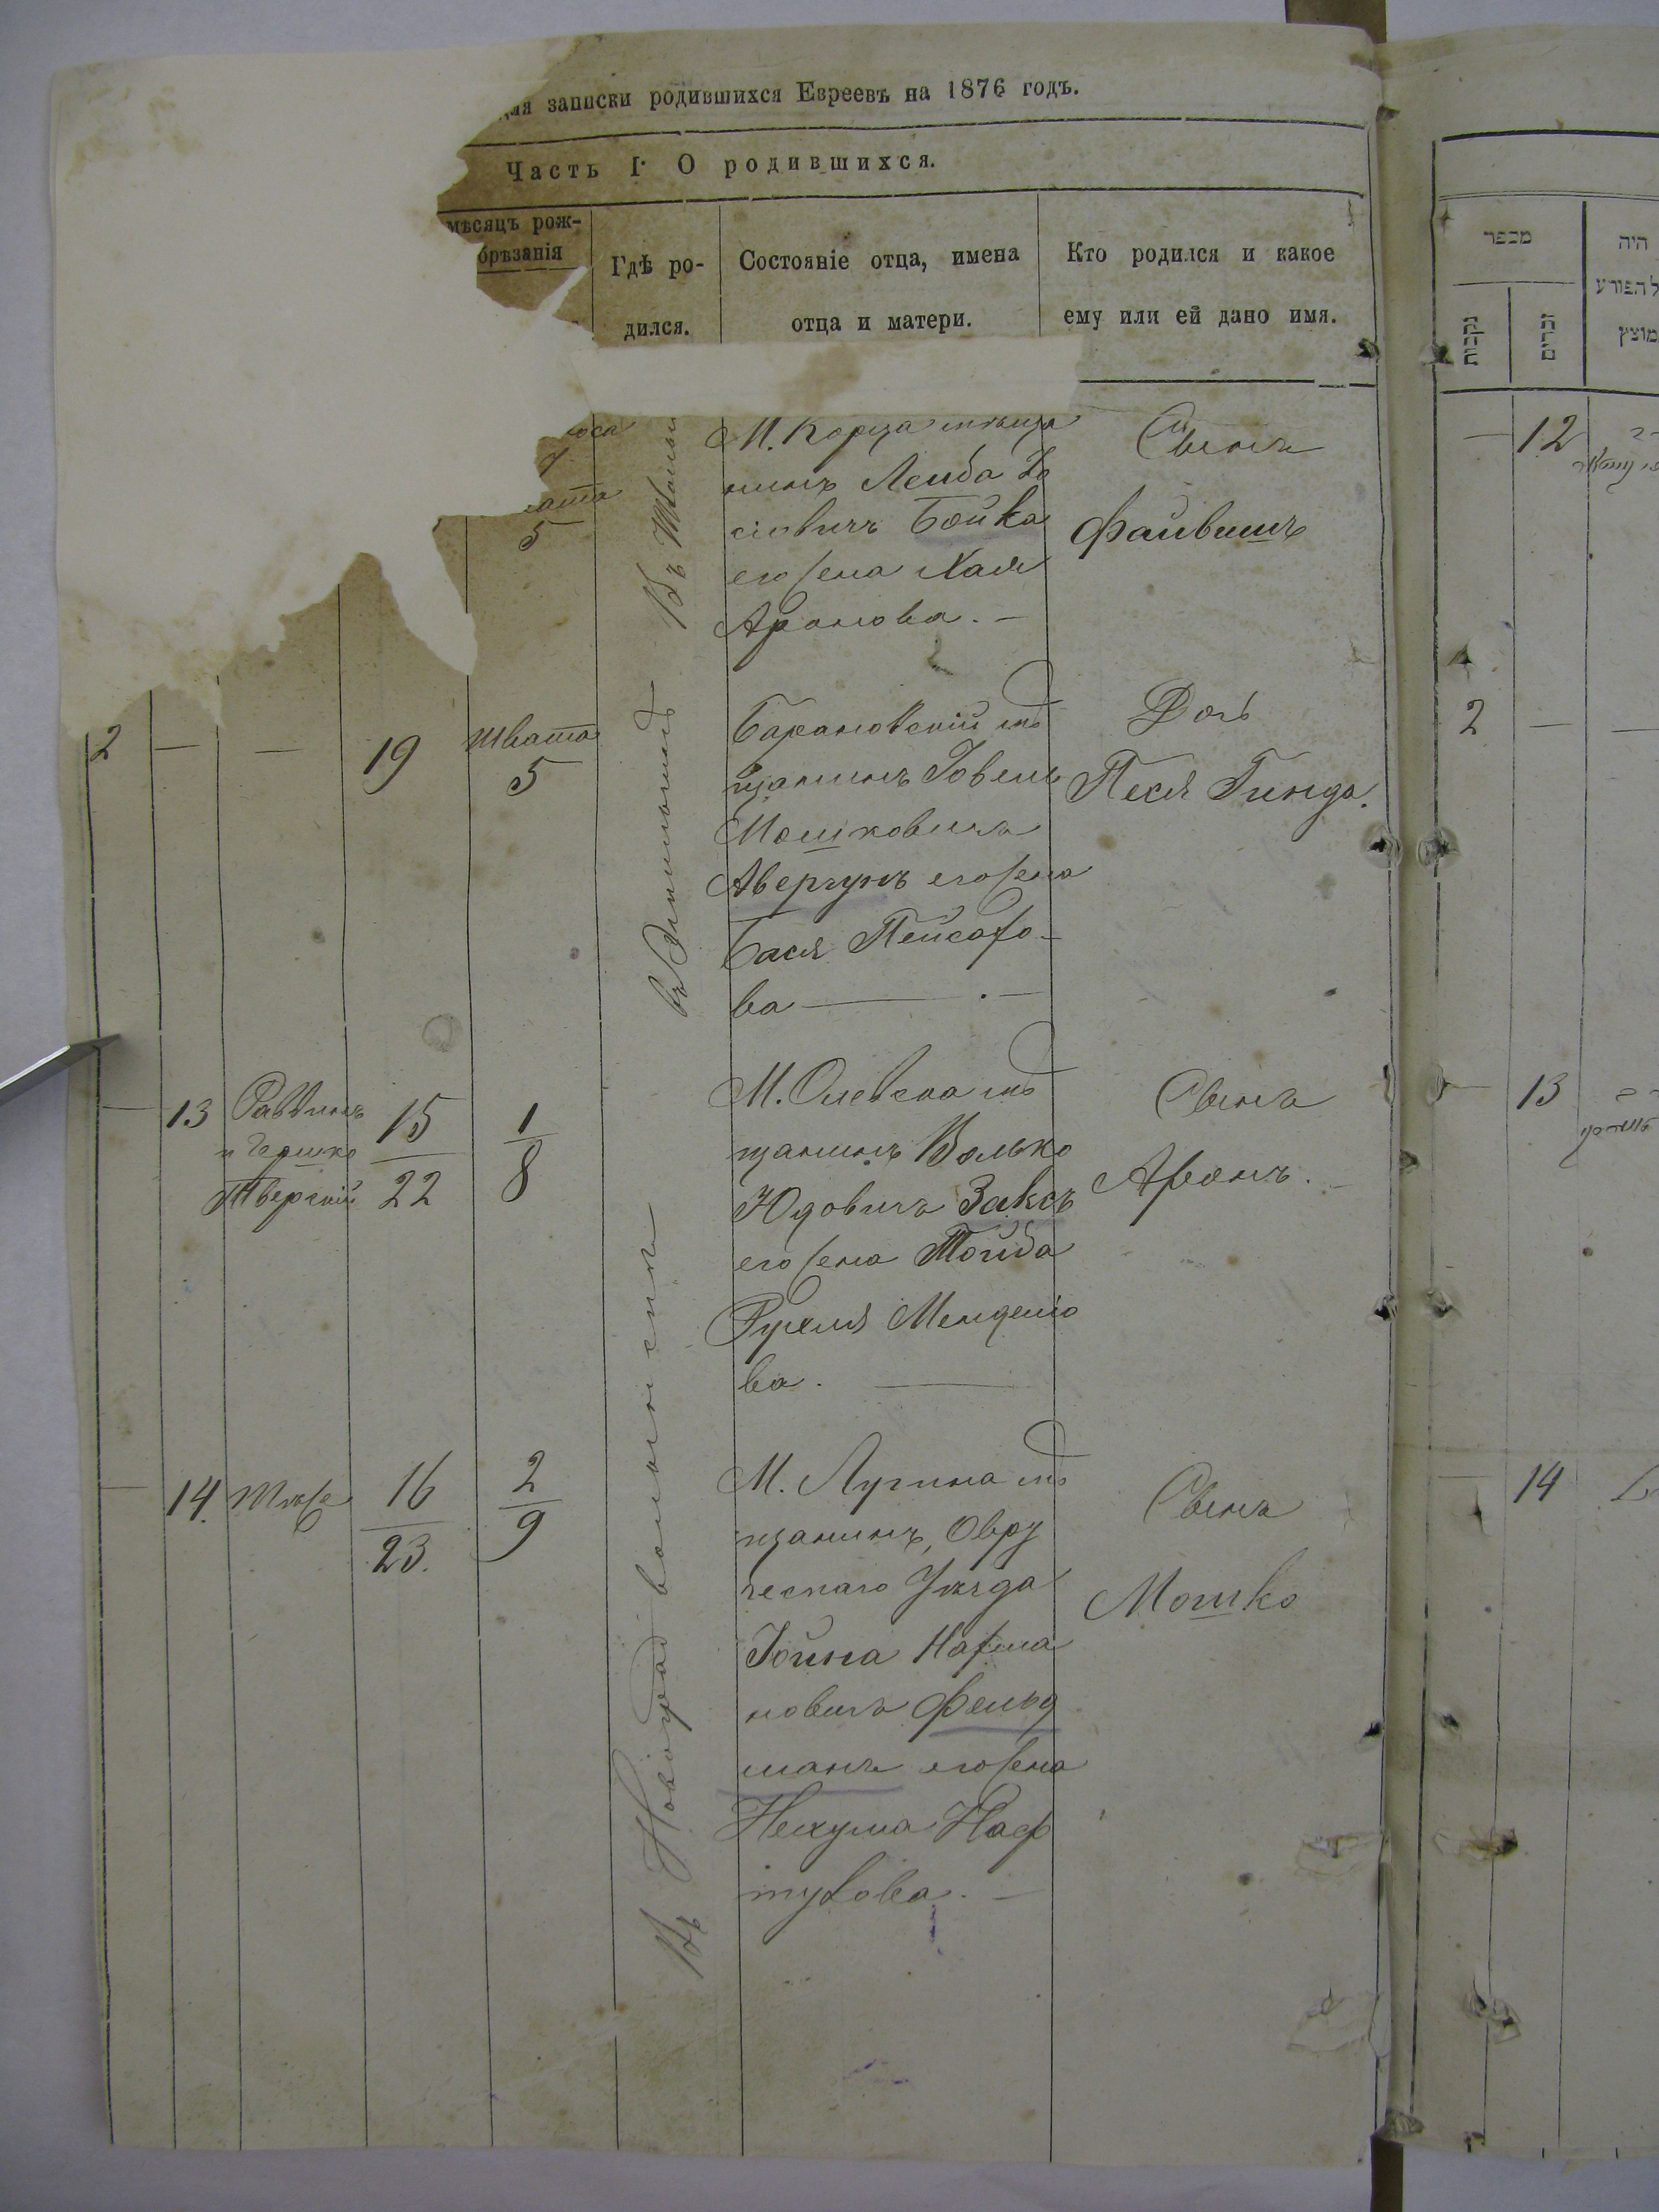 для записки родившихся Евреевъ на 1876 годъ.
Часть I О родившихся.
мѣсяцъ рож-
обрѣзанія
Гдѣ ро-
дился.
Состояніе отца, имена
отца и матери.
Кто родился и какое
ему или ей дано имя.
5
М. Корца мѣща
нинъ Лейба Іо
сіовичъ Бойка
его жена Хая
Аронова. —
Сынъ
Файвишъ
2 — — 19
Швата
5
Барановскій мѣ
щанинъ Іовель
Мошковичъ
Авергунъ его жена
Бася Пейсахо-
ва — . —
Дочь
Песя Гинда.
— 13
Раввинъ
и Гершко
Тверскій
15
22
1
8
М. Олевска мѣ
щанинъ Волько
Юдовичъ Заксъ
его жена Тойба
Рухля Менделіо
ва. —
Сынъ
Аронъ. —
— 14. Тѣже
16
23.
2
9
М. Лугина мѣ
щанинъ, Овру
ческаго Уѣзда
Іойна Нахма
новичъ Фельд
манъ его жена
Нехума Наф
тулова. —
Сынъ
Мошко
Въ Новоградволынскѣ
מספר
נקבות
זכרים
היה
מוצץ
— 12
2 —
— 13
— 14